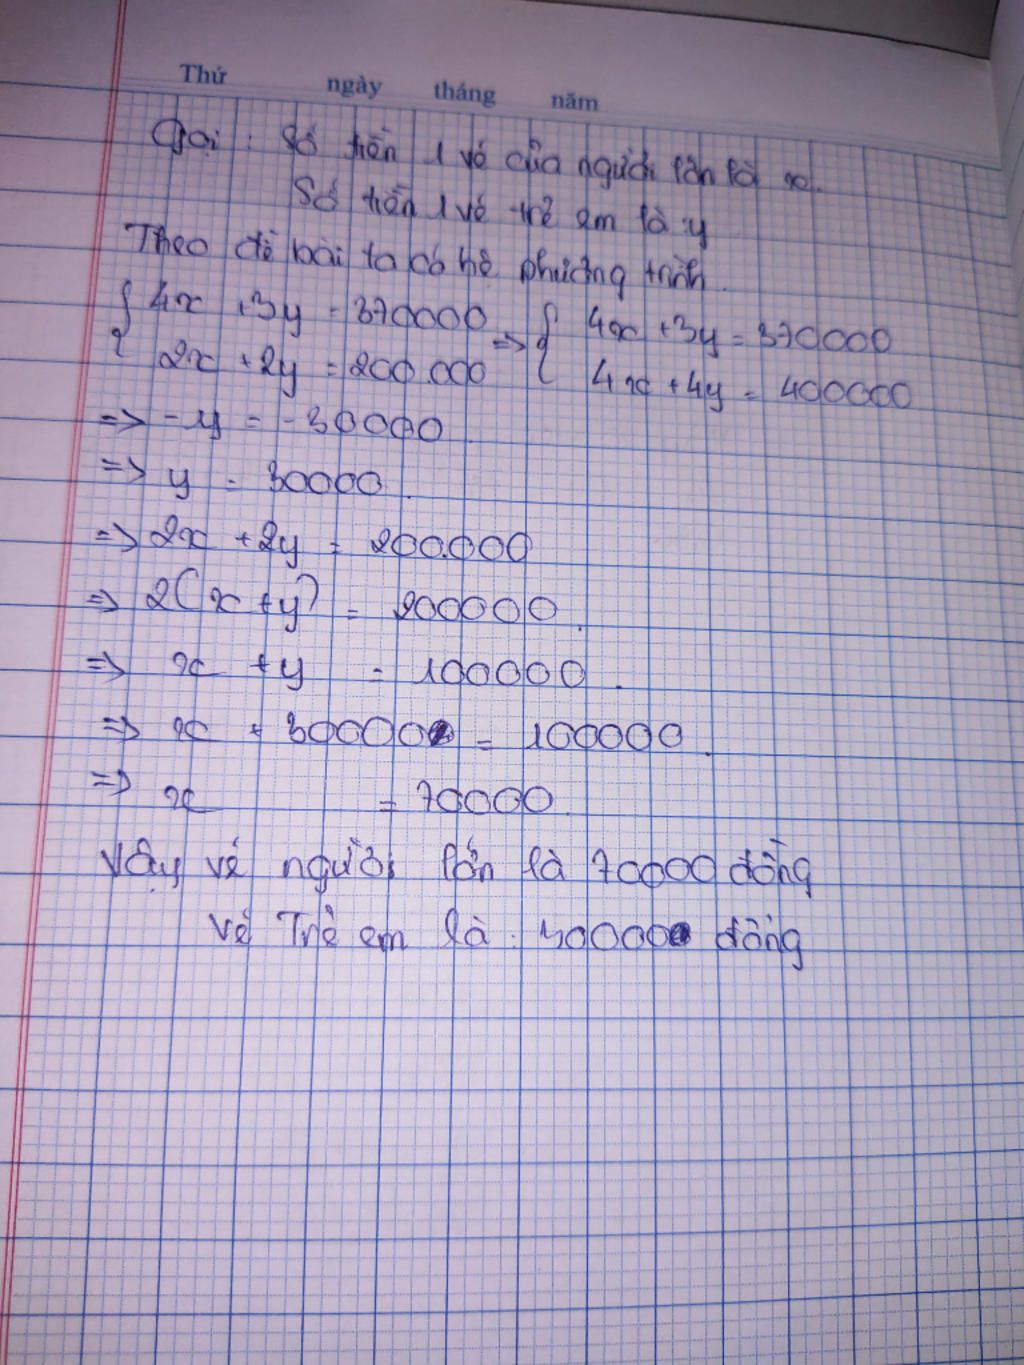 Thứ ngày tháng năm
Gọi : Số tiền 1 vé của người lớn là x.
Số tiền 1 vé trẻ em là y
Theo đề bài ta có hệ phương trình.
{ 4x + 3y = 370000 => { 4x + 3y = 370000
2x + 2y = 200.000 4x + 4y = 400000
=> -y = -30000
=> y = 30000.
=> 2x + 2y = 200.000
=> 2(x + y) = 200000.
=> x + y = 100000.
=> x + 30000 = 100000.
=> x = 70000.
Vậy vé người lớn là 70000 đồng
vé Trẻ em là : 30000 đồng